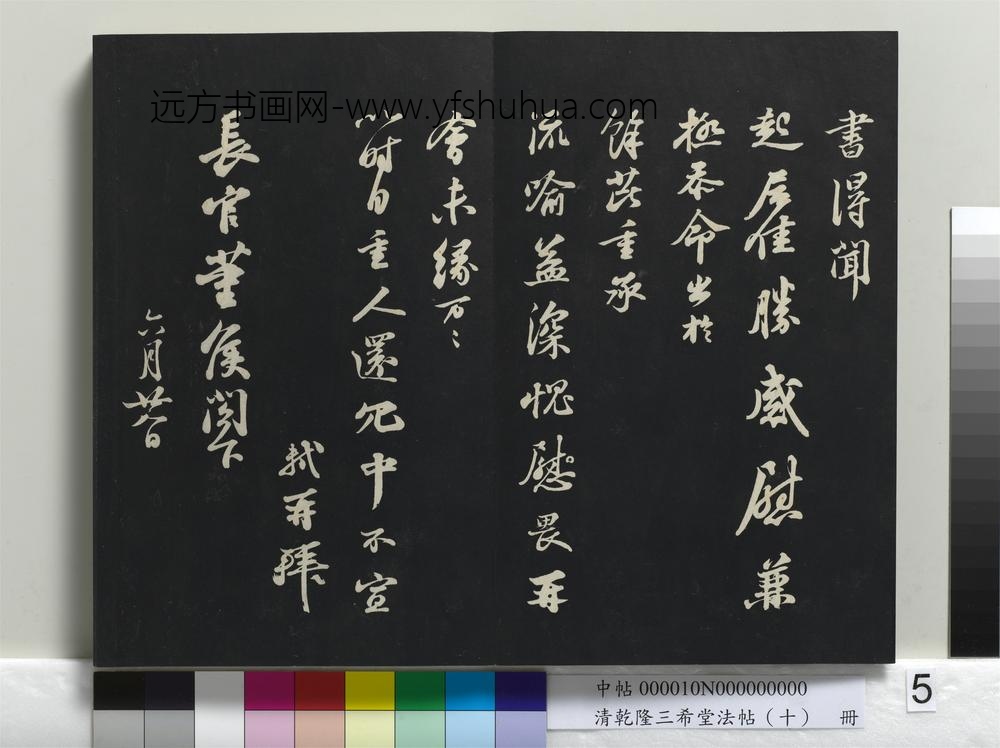 書得聞
起居佳勝感慰兼
極忝命出於
餘芘重承
流喻益深愧慰畏再
會未緣万〻
以时自重人還冗中不宣
軾再拜
長官董侯閤下
六月廿八日
远方书画网-www.yfshuhua.com
中帖 000010N000000000
清乾隆三希堂法帖（十） 冊
5